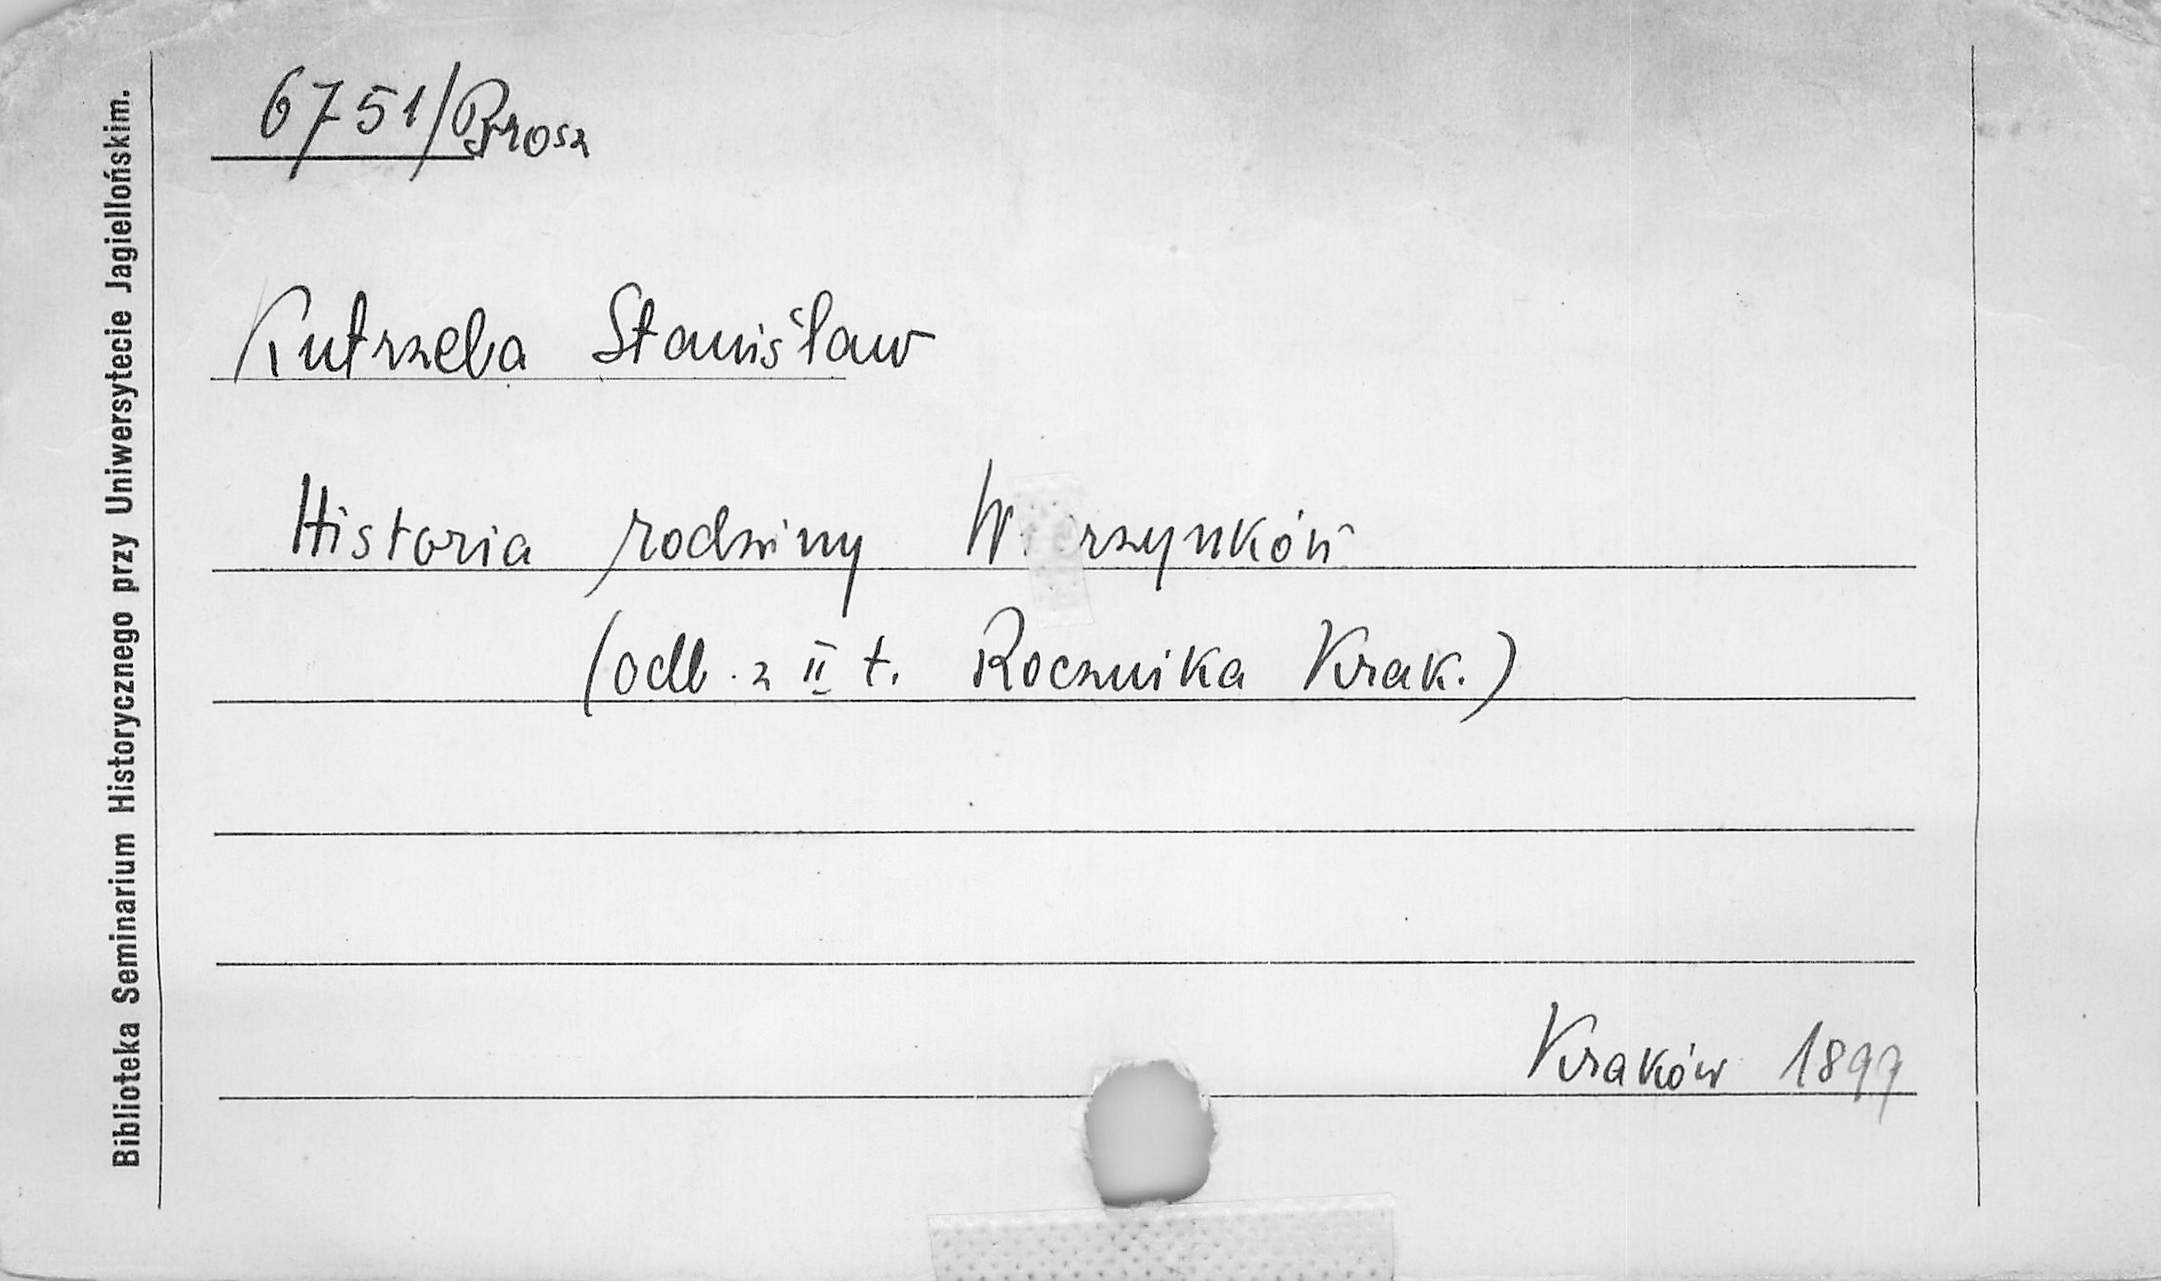 Biblioteka Seminarium Historycznego przy Uniwersytecie Jagiellońskim.
6751/Brosz
Kutrzeba Stanisław
Historia rodziny Wierzynków
(odb. z II t. Rocznika Krak.)
Kraków 1899